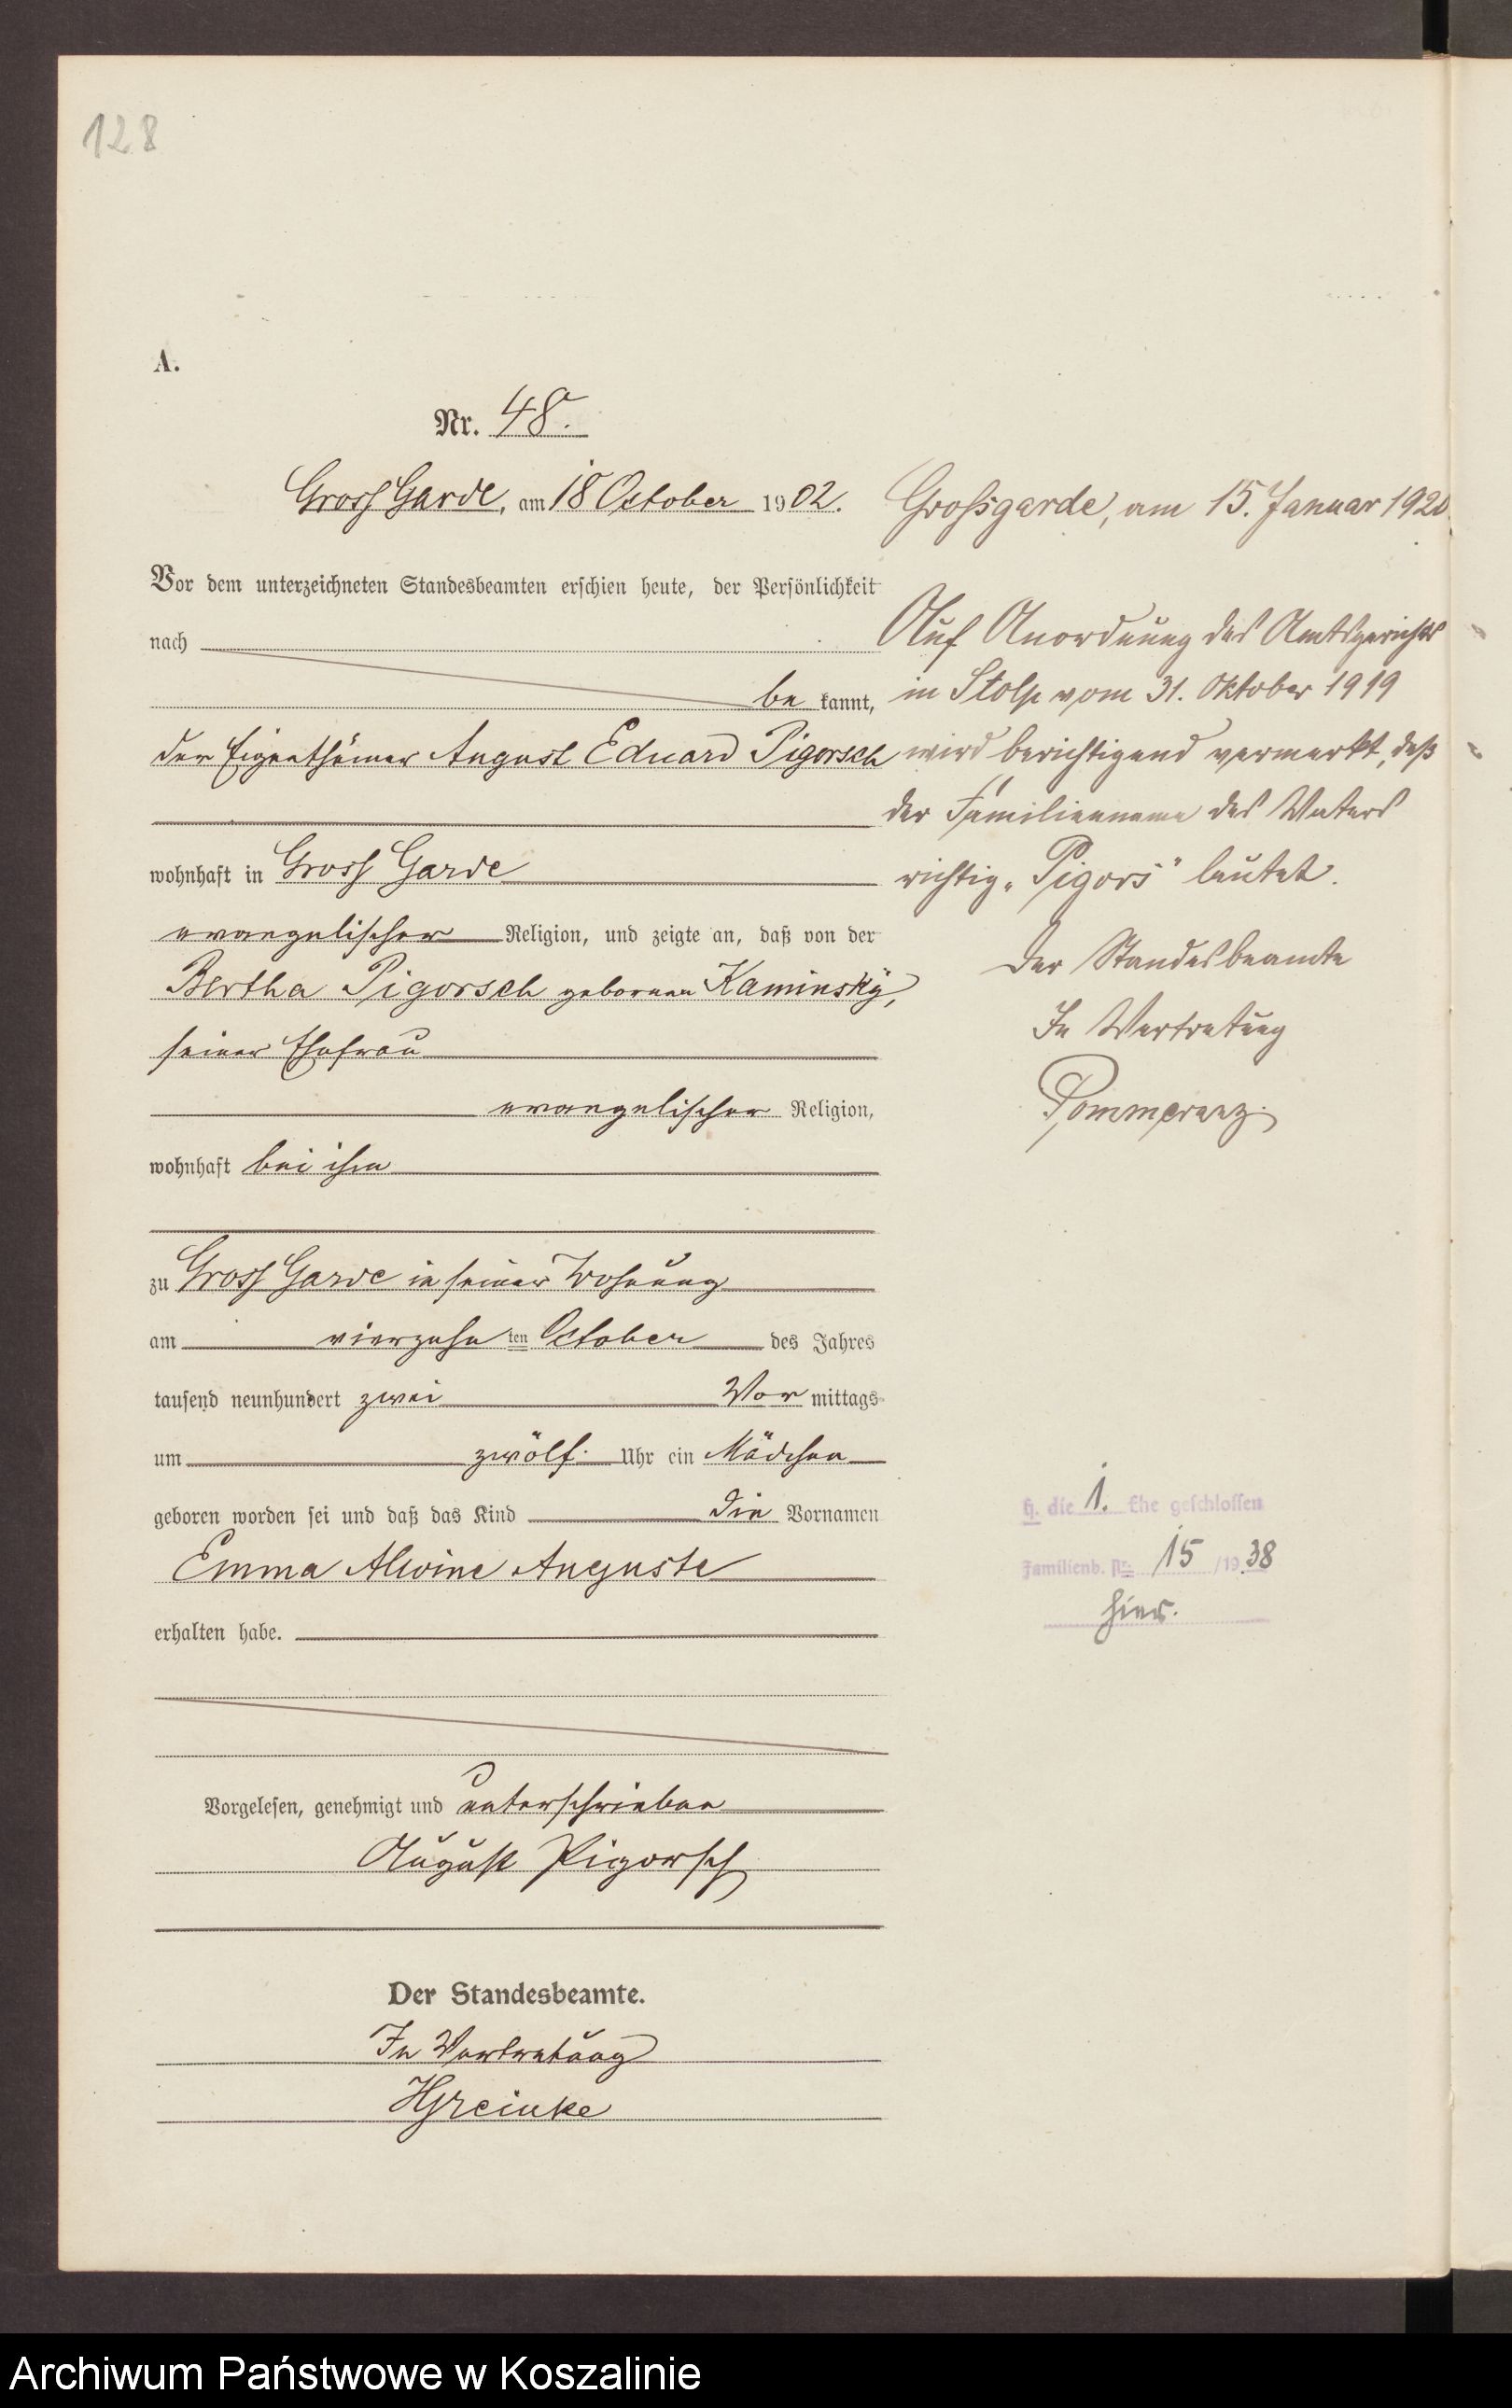 128
A.
Nr. 48.
Gross Garde, am 18 October 1902.
Vor dem unterzeichneten Standesbeamten erschien heute, der Persönlichkeit
nach
be kannt,
der Eigenthümer August Eduard Pigorsch
wohnhaft in Gross Garde
evangelischer Religion, und zeigte an, daß von der
Bertha Pigorsch geborenen Kaminsky,
seiner Ehefrau
evangelischer Religion,
wohnhaft bei ihm
zu Gross Garde in seiner Wohnung
am vierzehn ten October des Jahres
tausend neunhundert zwei Vor mittags
um zwölf Uhr ein Mädchen
geboren worden sei und daß das Kind die Vornamen
Emma Alwine Auguste
erhalten habe.
Vorgelesen, genehmigt und unterschrieben
August Pigorsch
Der Standesbeamte.
In Vertretung
Grossgarde, am 15. Januar 1920.
Auf Anordnung des Amtsgerichts
in Stolp vom 31. Oktober 1919
wird berichtigend vermerkt, daß
der Familienname des Vaters
richtig „Pigors" lautet.
Der Standesbeamte
In Vertretung
Pommerenz.
h. die 1. Ehe geschlossen
Familienb. Nr. 15 /1938
hier.
Archiwum Państwowe w Koszalinie